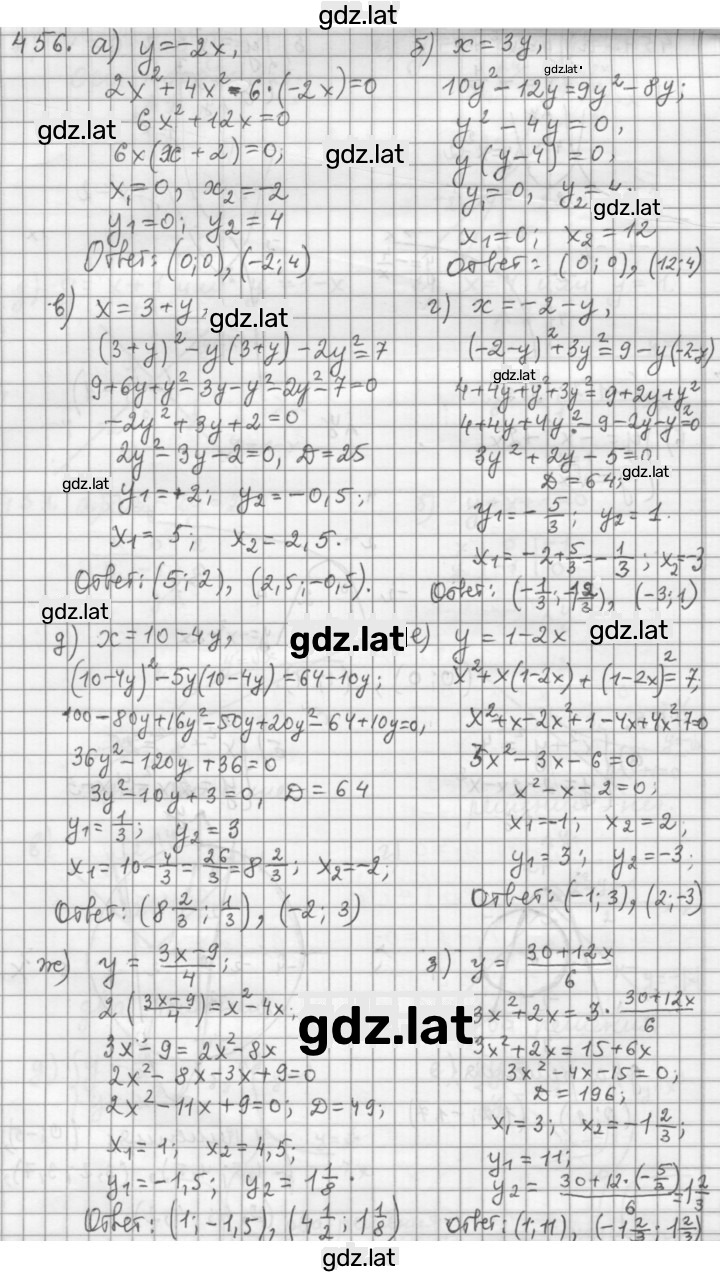 gdz.lat
456. а) y=-2x,
2x²+4x²-6·(-2x)=0
6x²+12x=0
gdz.lat
6x(x+2)=0;
x₁=0, x₂=-2
y₁=0; y₂=4
Ответ: (0;0), (-2;4)
б) x=3y,
gdz.lat
10y²-12y=9y²-8y;
y²-4y=0,
gdz.lat
y(y-4)=0,
y₁=0, y₂=4.
gdz.lat
x₁=0; x₂=12
Ответ: (0;0), (12;4)
в) x=3+y,
gdz.lat
(3+y)²-y(3+y)-2y²=7
9+6y+y²-3y-y²-2y²-7=0
-2y²+3y+2=0
2y²-3y-2=0, D=25
gdz.lat
y₁=+2; y₂=-0,5;
x₁=5; x₂=2,5.
Ответ: (5;2), (2,5;-0,5).
г) x=-2-y,
(-2-y)²+3y²=9-y(-2-y)
gdz.lat
4+4y+y²+3y²=9+2y+y²
4+4y+4y²-9-2y-y²=0
3y²+2y-5=0
gdz.lat
D=64;
y₁=-5/3; y₂=1.
x₁=-2+5/3=-1/3; x₂=-3
Ответ: (-1/3; -1 2/3), (-3;1)
gdz.lat
д) x=10-4y,
gdz.lat
(10-4y)²-5y(10-4y)=64-10y;
100-80y+16y²-50y+20y²-64+10y=0,
36y²-120y+36=0
3y²-10y+3=0, D=64
y₁=1/3; y₂=3
x₁=10-4/3=26/3=8 2/3; x₂=-2;
Ответ: (8 2/3; 1/3), (-2; 3)
е) y=1-2x
gdz.lat
x²+x(1-2x)+(1-2x)²=7;
x²+x-2x²+1-4x+4x²-7=0
3x²-3x-6=0
x²-x-2=0;
x₁=-1; x₂=2;
y₁=3; y₂=-3;
Ответ: (-1;3), (2;-3)
ж) y=(3x-9)/4;
2((3x-9)/4)=x²-4x;
gdz.lat
3x-9=2x²-8x
2x²-8x-3x+9=0
2x²-11x+9=0; D=49;
x₁=1; x₂=4,5;
y₁=-1,5; y₂=1 1/8.
Ответ: (1;-1,5), (4 1/2; 1 1/8)
з) y=(30+12x)/6
3x²+2x=3·(30+12x)/6
3x²+2x=15+6x
3x²-4x-15=0;
D=196;
x₁=3; x₂=-1 2/3;
y₁=11;
y₂=(30+12·(-5/3))/6=1 2/3
Ответ: (1;11), (-1 2/3; 1 2/3)
gdz.lat